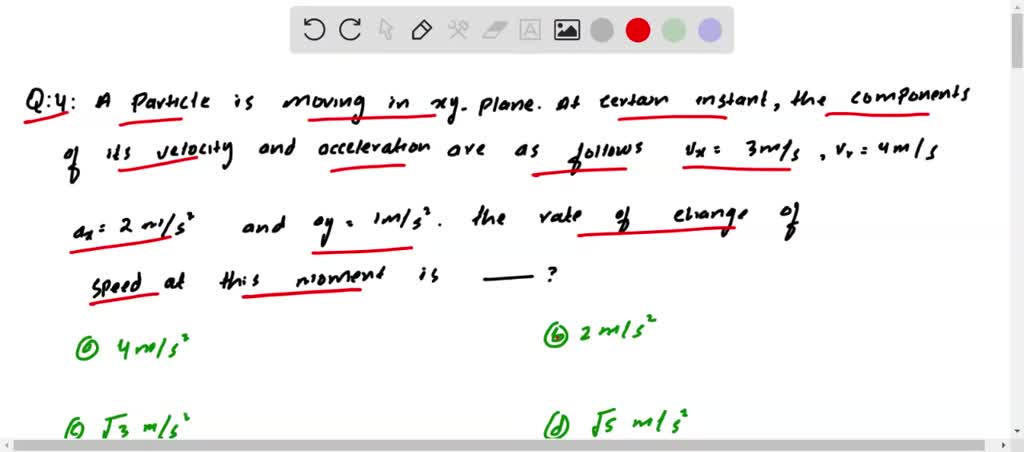 Q:4: A Particle is moving in xy-plane. At certain instant, the components
of its velocity and acceleration are as follows Vx = 3m/s, Vy = 4m/s
ax = 2 m/s² and ay = 1m/s². the rate of change of
speed at this moment is ___ ?
(a) 4m/s² (b) 2 m/s²
(c) √3 m/s² (d) √5 m/s²